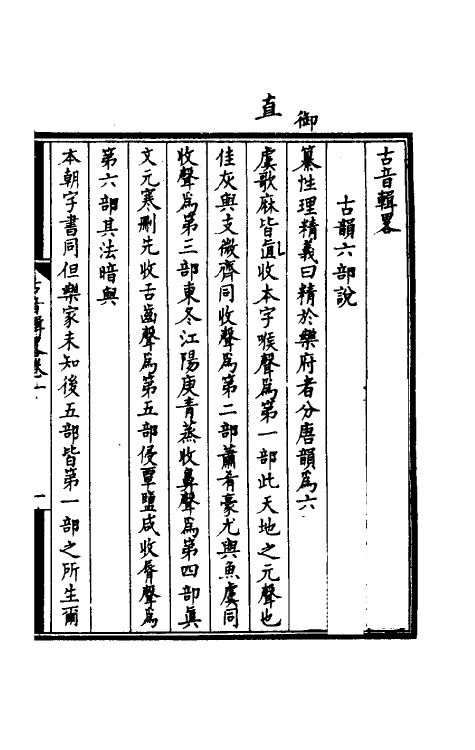 古音輯畧
古韻六部說
御
纂性理精義曰精於樂府者分唐韻爲六
直
虞歌麻皆直收本字喉聲爲第一部此天地之元聲也
佳灰與支微齊同收聲爲第二部蕭肴豪尤與魚虞同
收聲爲第三部東冬江陽庚青蒸收鼻聲爲第四部眞
文元寒刪先收舌齒聲爲第五部侵覃鹽咸收脣聲爲
第六部其法暗與
本朝字書同但樂家未知後五部皆第一部之所生爾
古音輯畧卷一
一